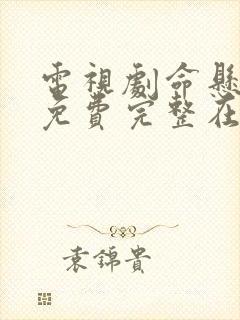 電視劇命懸
免費完整在
袁錦貴